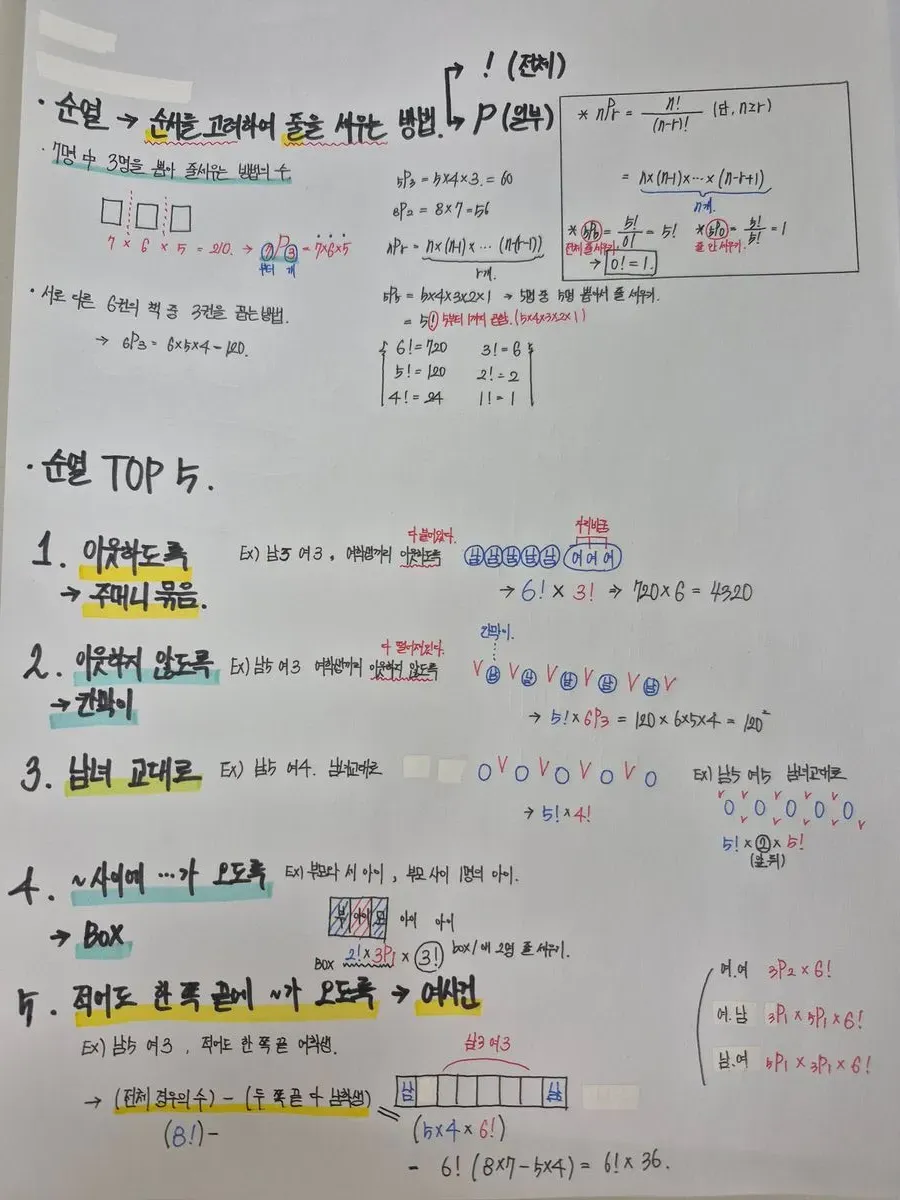 ! (전체)
· 순열 → 순서를 고려하여 줄을 세우는 방법. → P (일부)
· 7명 中 3명을 뽑아 줄세우는 방법의 수
7 × 6 × 5 = 210. → 7P3 = 7×6×5
부터 개
· 서로 다른 6권의 책 중 3권을 꼽는방법.
→ 6P3 = 6×5×4 = 120.
5P3 = 5×4×3. = 60
8P2 = 8×7 = 56
nPr = n×(n-1)×··· (n-(r-1))
r개.
5P5 = 5×4×3×2×1 → 5명 중 5명 뽑아서 줄 세우기.
= 5! 5부터 1까지 곱함. (5×4×3×2×1)
6! = 720 3! = 6
5! = 120 2! = 2
4! = 24 1! = 1
* nPr = n!/(n-r)! (단, n≥r)
= n×(n-1)×···×(n-r+1)
n개.
* 5P5 = 5!/0! = 5! * 5P0 = 5!/5! = 1
전체 줄세우기. 줄 안 세우기.
→ 0! = 1.
· 순열 TOP 5.
1. 이웃하도록
→ 주머니 묶음.
Ex) 남5 여3, 여학생끼리 이웃하도록
다 붙어있다.
자리바꿈
남 남 남 남 남 여 여 여
→ 6! × 3! ⇒ 720×6 = 4320
2. 이웃하지 않도록
→ 칸막이
Ex) 남5 여3 여학생끼리 이웃하지 않도록
다 떨어져있다.
칸막이.
V 남 V 남 V 남 V 남 V 남 V
→ 5! × 6P3 = 120 × 6×5×4 = 120²
3. 남녀 교대로
Ex) 남5 여4. 남녀교대로
O V O V O V O V O
→ 5! × 4!
Ex) 남5 여5 남녀교대로
O O O O O
5! × 2 × 5!
(앞.뒤)
4. ~사이에 …가 오도록
→ BOX
Ex) 부모와 세 아이, 부모 사이 1명의 아이.
부 아이 모 아이 아이
BOX 2! × 3P1 × 3! box/애 2명 줄 세우기.
5. 적어도 한 쪽 끝에 ~가 오도록 → 여사건
Ex) 남5 여3, 적어도 한 쪽 끝 여학생.
→ (전체 경우의 수) - (두 쪽 끝 다 남학생)
(8!) -
남3 여3
남 남
(5×4 × 6!)
- 6! (8×7-5×4) = 6! × 36.
여.여 3P2 × 6!
여.남 3P1 × 5P1 × 6!
남.여 5P1 × 3P1 × 6!